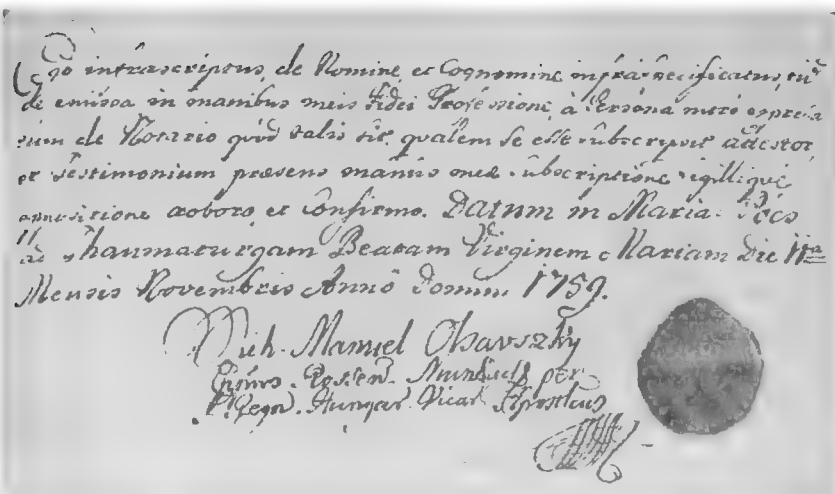 Ego infrascriptus, de Nomine, et Cognomine infra specificatus, tũ
de emissa in manibus meis Fidei Professione, à Persona mero expres
sũm de Notario quòd talis sit, qualem se esse subscripsit adtestor
et Testimonium praesens manûs meae subscriptione sigillique
appositione roboro, et Confirmo. Datum in Maria-Pócs
ad Thaumaturgam Beatam Virginem Mariam Die 11ma
Mensis Novembris Annô Domini 1759.
Mich. Manuel Olsavszky
Eppus Rossen. Munkács per
Regn. Hungar. Vicar. Apostlcus